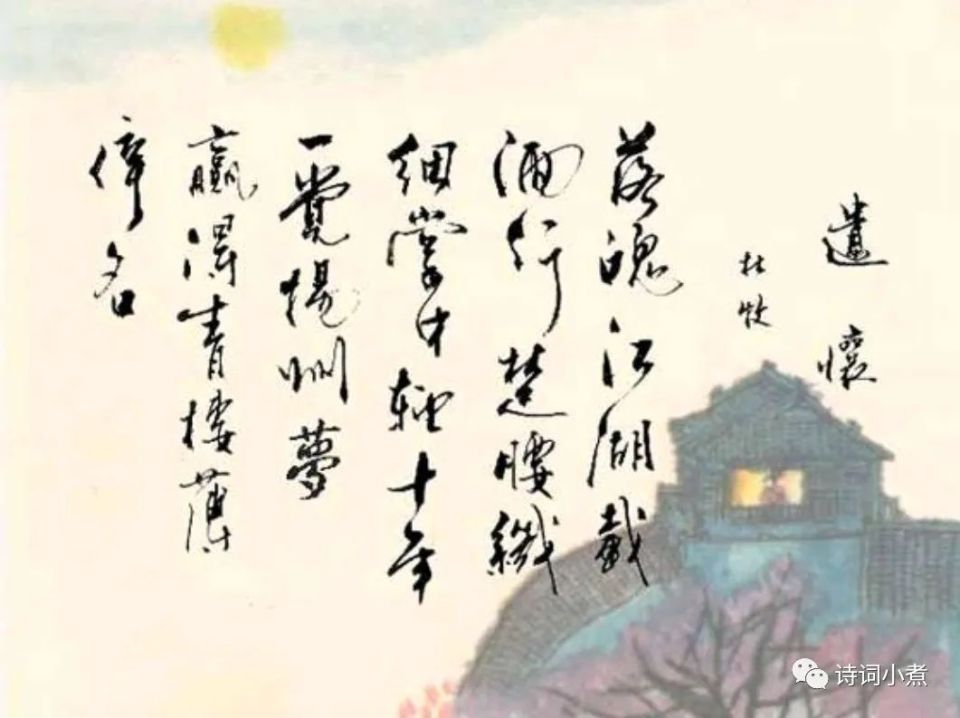 遣懷
杜牧
落魄江湖載
酒行楚腰纖
細掌中輕十年
一覺揚州夢
贏得青樓薄
倖名
诗词小煮